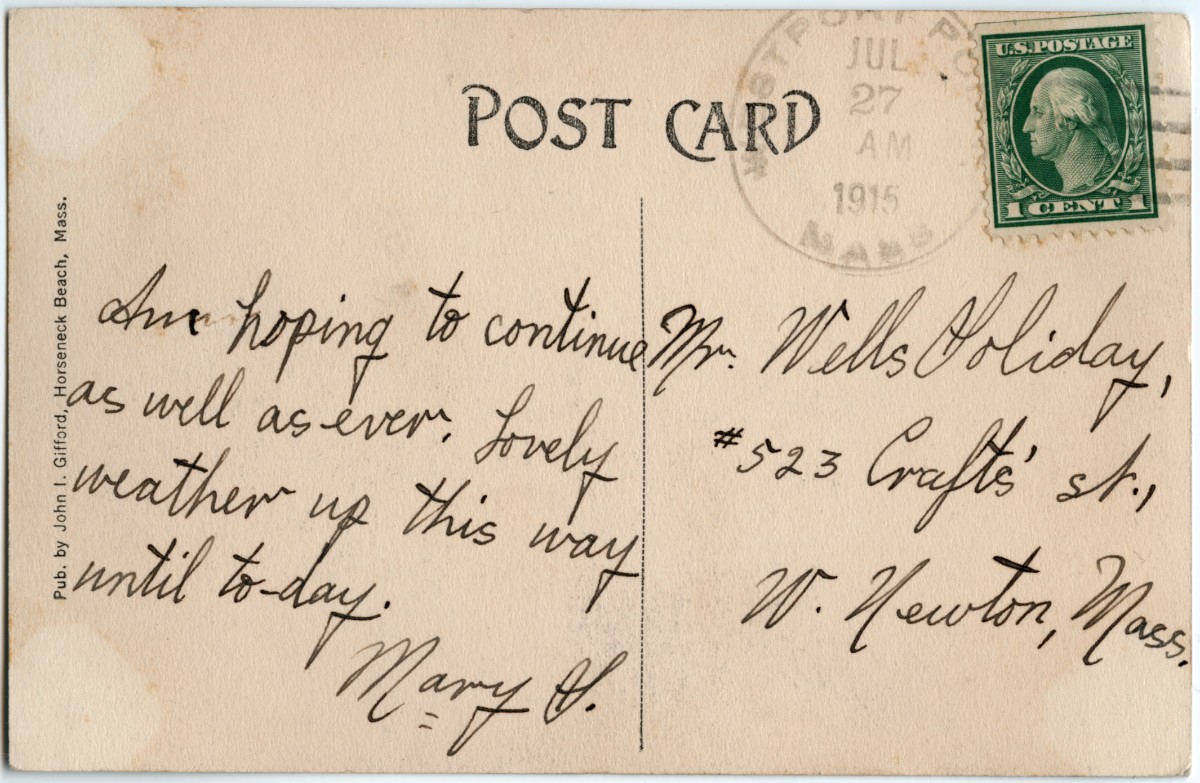 POST CARD
WESTPORT PO
JUL
27
AM
1915
MASS
U.S. POSTAGE
1 CENT 1
Pub. by John I. Gifford, Horseneck Beach, Mass.
Am hoping to continue
as well as ever. Lovely
weather up this way
until to-day.
Mary H.
Mr. Wells Holiday,
#523 Crafts' st.,
W. Newton, Mass.